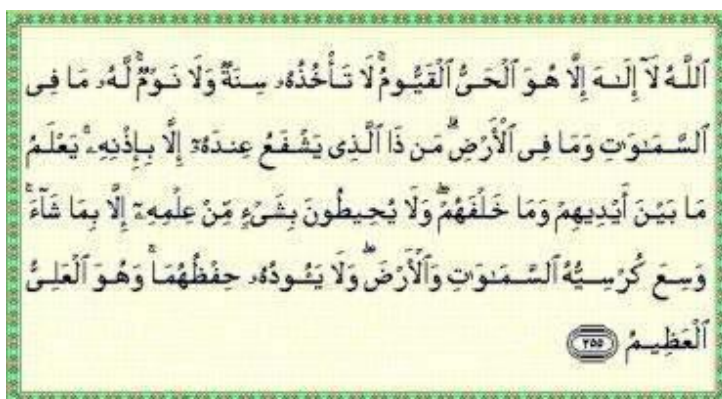 ٱللَّهُ لَآ إِلَـٰهَ إِلَّا هُوَ ٱلْحَىُّ ٱلْقَيُّومُ ۚ لَا تَأْخُذُهُۥ سِنَةٌ وَلَا نَوْمٌ ۚ لَّهُۥ مَا فِى
ٱلسَّمَـٰوَٰتِ وَمَا فِى ٱلْأَرْضِ ۗ مَن ذَا ٱلَّذِى يَشْفَعُ عِندَهُۥٓ إِلَّا بِإِذْنِهِۦ ۚ يَعْلَمُ
مَا بَيْنَ أَيْدِيهِمْ وَمَا خَلْفَهُمْ ۖ وَلَا يُحِيطُونَ بِشَىْءٍ مِّنْ عِلْمِهِۦٓ إِلَّا بِمَا شَآءَ ۚ
وَسِعَ كُرْسِيُّهُ ٱلسَّمَـٰوَٰتِ وَٱلْأَرْضَ ۖ وَلَا يَـُٔودُهُۥ حِفْظُهُمَا ۚ وَهُوَ ٱلْعَلِىُّ
ٱلْعَظِيمُ ٢٥٥